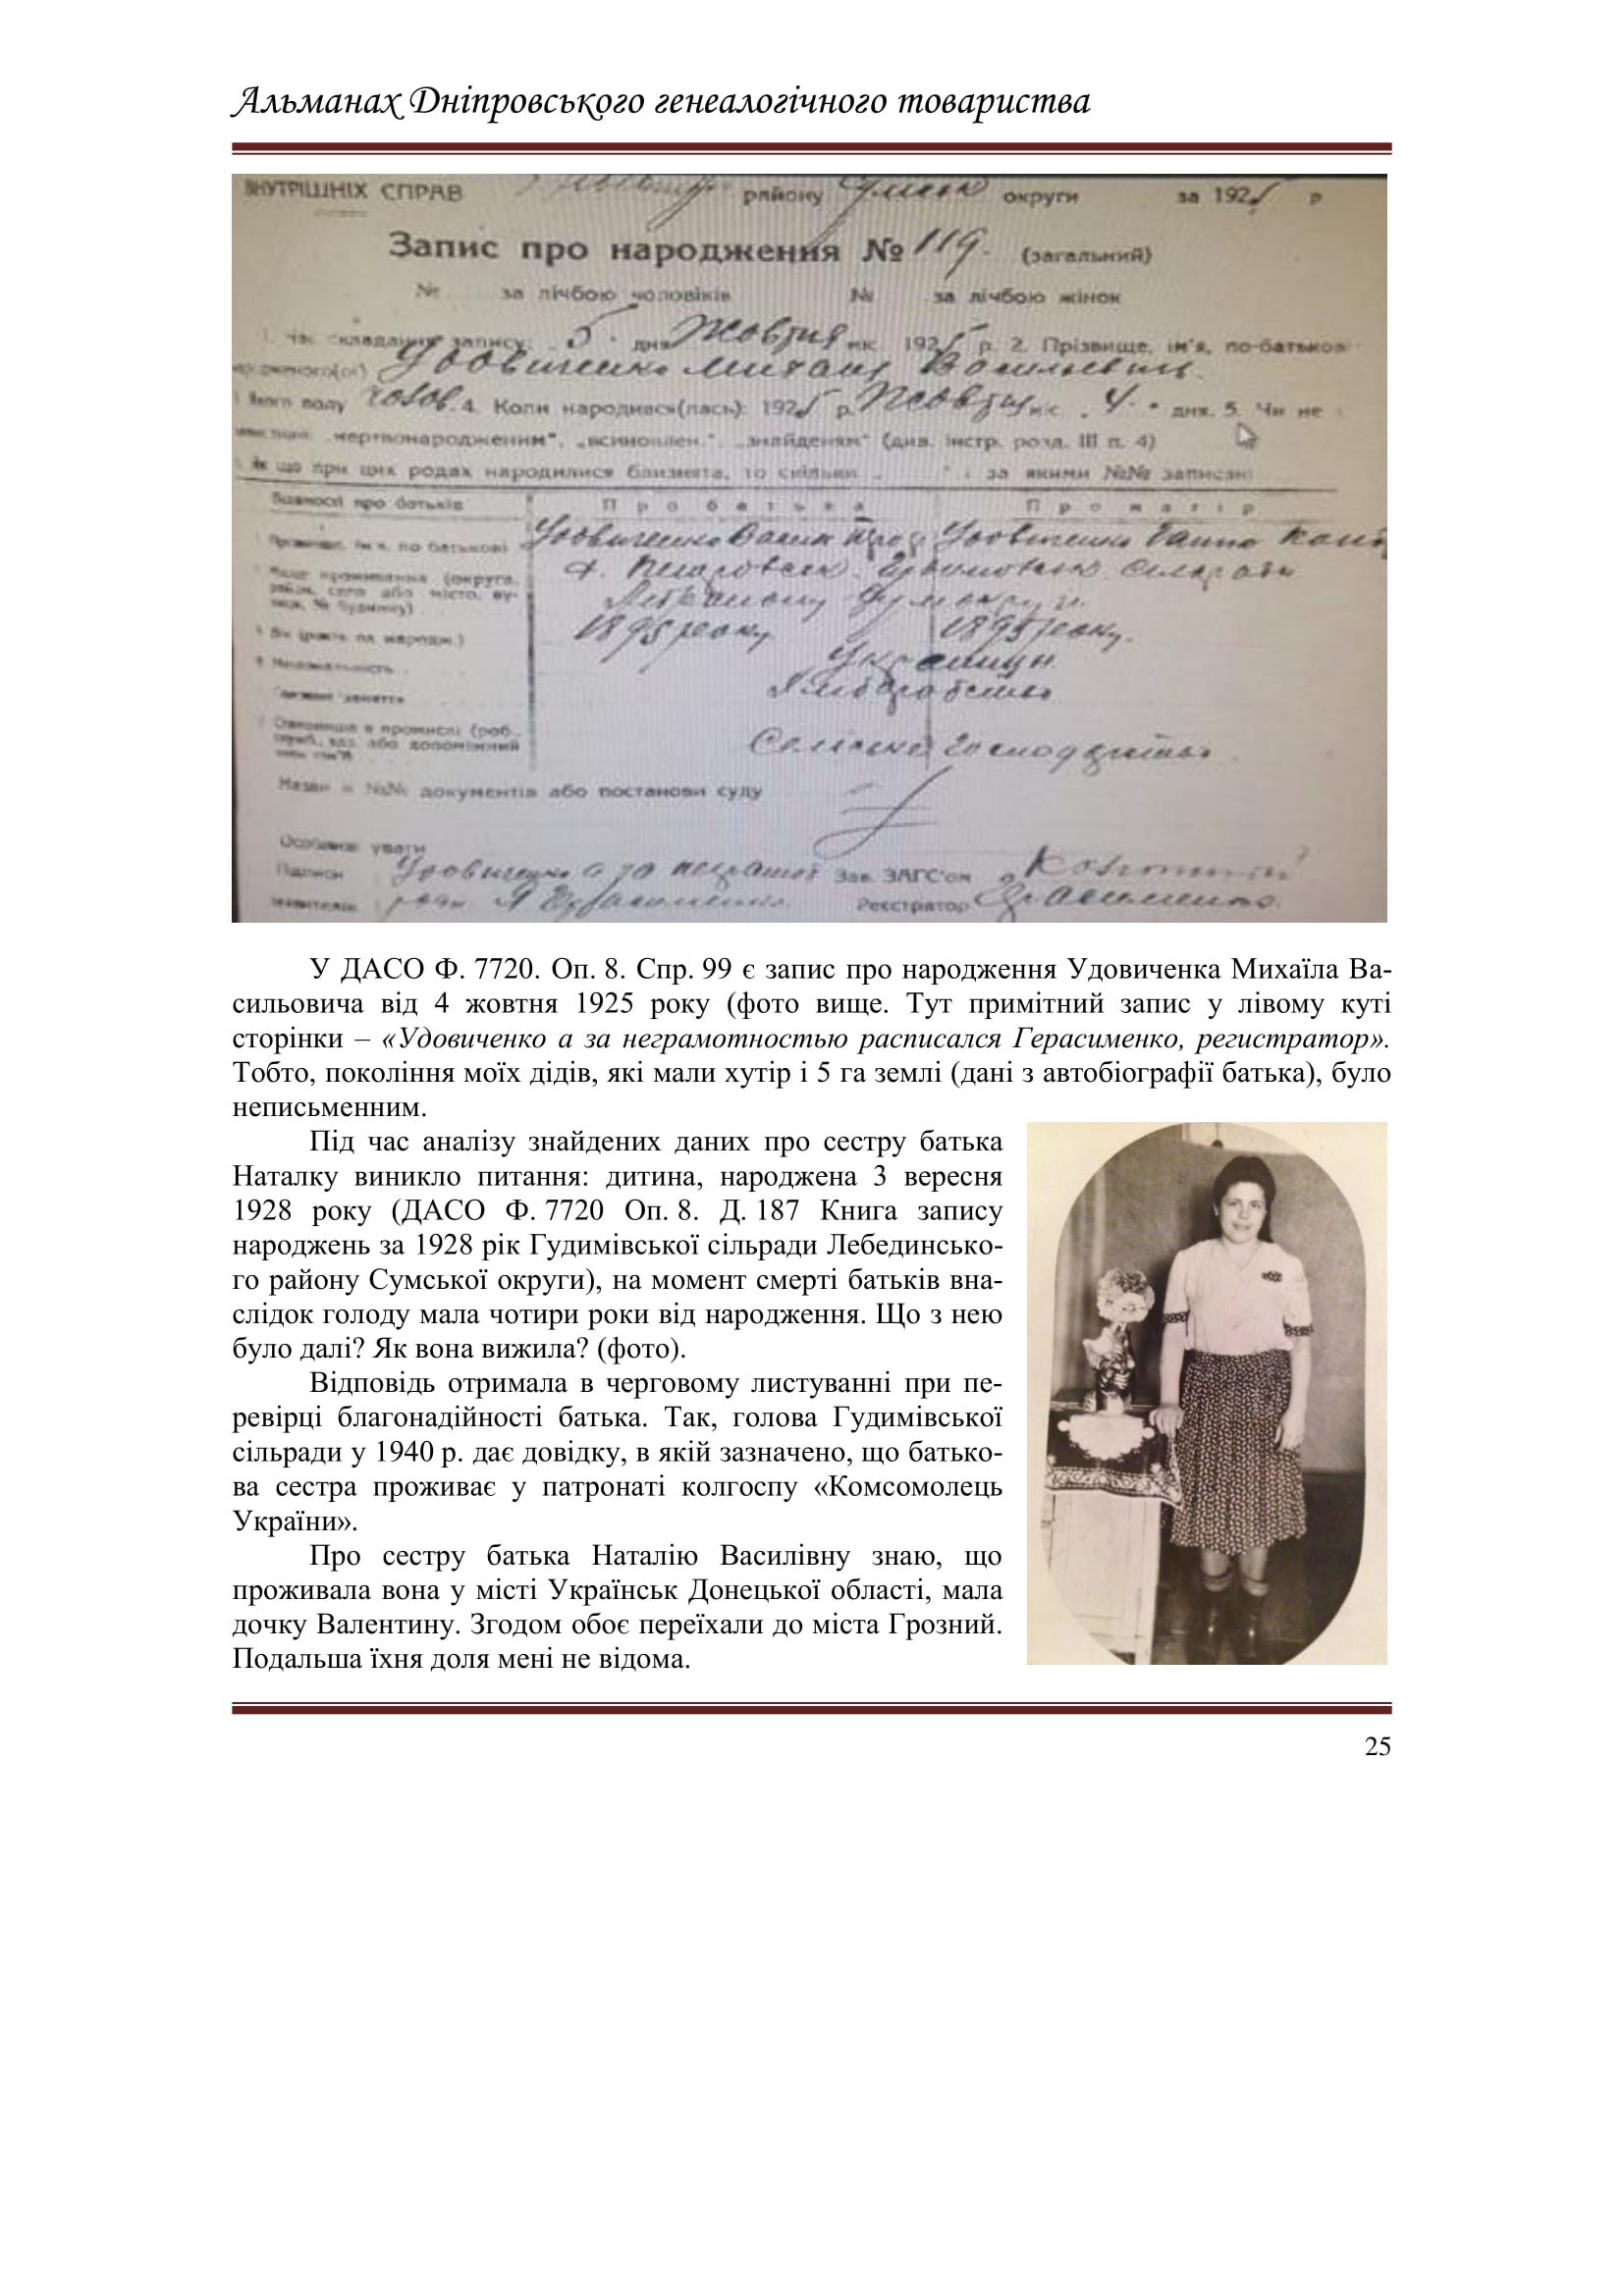 Альманах Дніпровського генеалогічного товариства
ВНУТРІШНІХ СПРАВ району округи за 192 р
Запис про народження № 119. (загальний)
№ за лічбою чоловіків № за лічбою жінок
1. Час складання запису: 5 дня Жовтня міс. 1925 р. 2. Прізвище, ім'я, по-батькові
Удовиченко Михаил Васильевич
Якого полу 4. Коли народився(лась): 1925 р. Жовтня міс. 4 дня. 5. Чи не
„мертвонародженим", „всиновлен.", „знайденям" (див. інстр. розд. III п. 4)
Як що при цих родах народилися близнята, то скільки за якими №№ записані
Відомості про батьків Про батька Про матір
Прізвище, ім'я, по батькові Удовиченко Удовиченко Ганна
Місце проживання (округа,
район, село або місто, ву-
лиця, № будинку)
Вік (років од народж.) 1895 року 1895 року.
Національність
Головне заняття
Становище в промислі (роб.,
або допоміжний
Назви й №№ документів або постанови суду
Особливі уваги
Підписи Удовиченко а за Зав. ЗАГС'ом
заявителів Герасименко. Реєстратор Герасименко.
У ДАСО Ф. 7720. Оп. 8. Спр. 99 є запис про народження Удовиченка Михаїла Ва-
сильовича від 4 жовтня 1925 року (фото вище. Тут примітний запис у лівому куті
сторінки – «Удовиченко а за неграмотностью расписался Герасименко, регистратор».
Тобто, покоління моїх дідів, які мали хутір і 5 га землі (дані з автобіографії батька), було
неписьменним.
Під час аналізу знайдених даних про сестру батька
Наталку виникло питання: дитина, народжена 3 вересня
1928 року (ДАСО Ф. 7720 Оп. 8. Д. 187 Книга запису
народжень за 1928 рік Гудимівської сільради Лебединсько-
го району Сумської округи), на момент смерті батьків вна-
слідок голоду мала чотири роки від народження. Що з нею
було далі? Як вона вижила? (фото).
Відповідь отримала в черговому листуванні при пе-
ревірці благонадійності батька. Так, голова Гудимівської
сільради у 1940 р. дає довідку, в якій зазначено, що батько-
ва сестра проживає у патронаті колгоспу «Комсомолець
України».
Про сестру батька Наталію Василівну знаю, що
проживала вона у місті Українськ Донецької області, мала
дочку Валентину. Згодом обоє переїхали до міста Грозний.
Подальша їхня доля мені не відома.
25